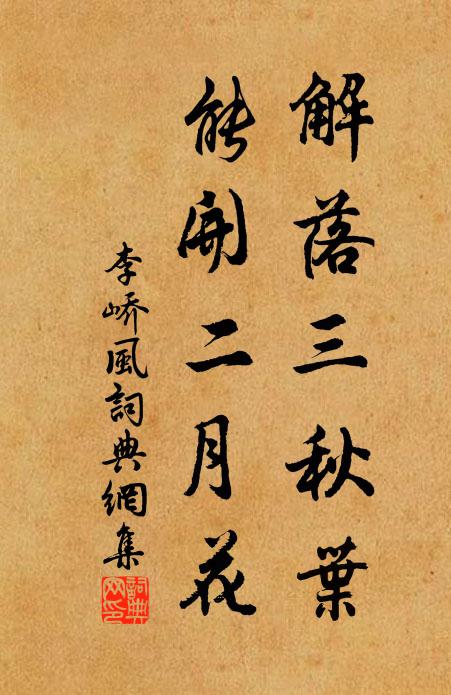 解落三秋葉
能開二月花
李嶠風詞典網集
詞典網印